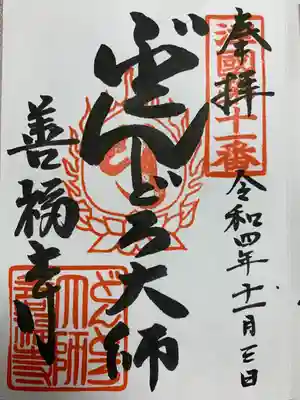 奉拝
國第十一番
令和四年十一月三日
どんどろ大師
善福寺